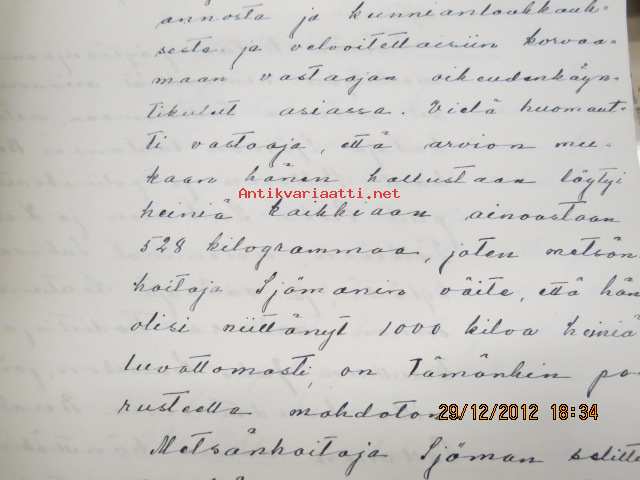 annosta ja kunnianloukkauk-
sesta ja velvoitettaisiin korvaa-
maan vastaajan oikeudenkäyn-
tikulut asiassa. Vielä huomaut-
ti vastaaja, että arvion mu-
kaan hänen hallustaan löytyi
Antikvariaatti.net
heiniä kaikkiaan ainoastaan
528 kilogrammaa, joten metsän-
hoitaja Sjömanin väite, että hän
olisi niittänyt 1000 kiloa heiniä
luvattomasti, on tämänkin pe-
rusteella mahdoton
29/12/2012 18:34
Metsänhoitaja Sjöman selitti